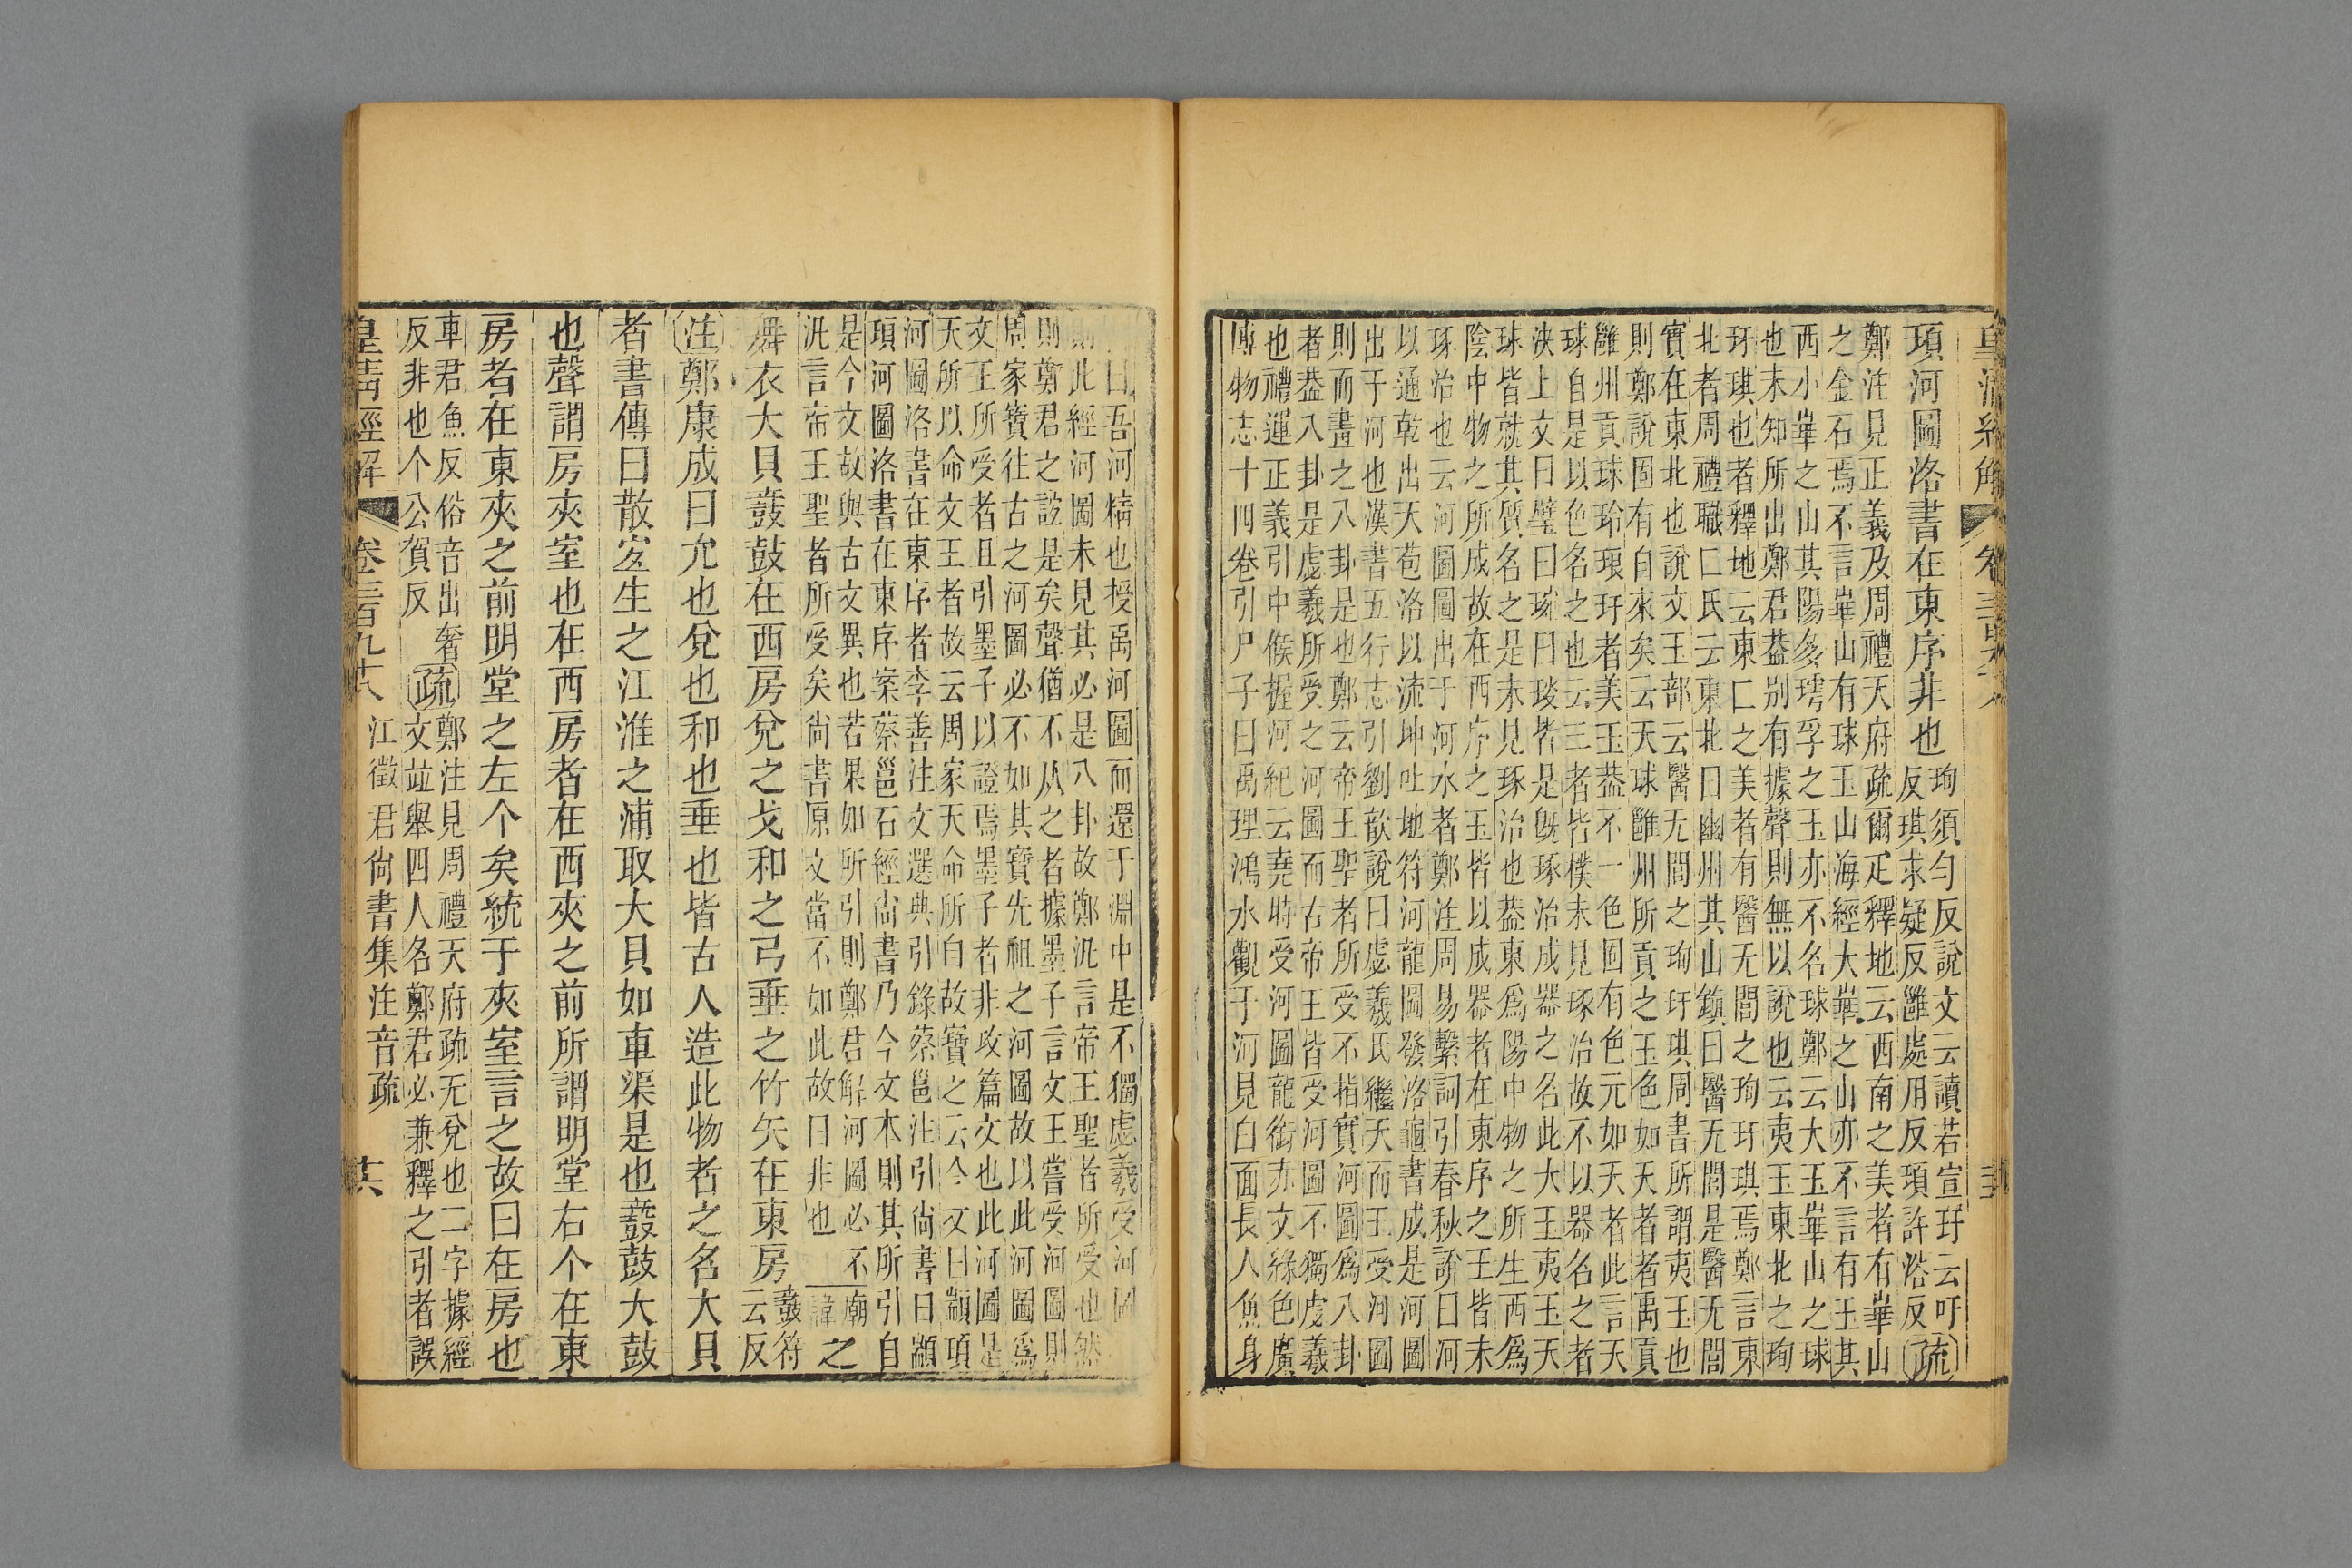 頊河圖洛書在東序非也
珣須勻反說文云讀若宣玗云吁
反琪求疑反雝處用反頊許浴反疏
鄭注見正義及周禮天府疏爾疋釋地云西南之美者有華山
之金石焉不言華山有球玉山海經大華之山亦不言有玉其
西小華之山其陽多㻬孚之玉亦不名球鄭云大玉華山之球
也未知所出鄭君葢別有據聲則無以說也云夷玉東北之珣
玗琪也者釋地云東匚之美者有醫无閭之珣玗琪焉鄭言東
北者周禮職匚氏云東北曰幽州其山鎮曰醫无閭是醫无閭
實在東北也說文玉部云醫无閭之珣玗琪周書所謂夷玉也
則鄭說固有自來矣云天球雝州所貢之玉色如天者者禹貢
雝州貢球玲琅玕者美玉葢不一色固有色元如天者此言天
球自是以色名之也云三者皆樸未見琢治故不以器名之者
泱上文曰璧曰琬曰琰皆是旣琢治成器之名此大玉夷玉天
球皆就其質名之是未見琢治也葢東爲陽中物之所生西爲
陰中物之所成故在西序之玉皆以成器者在東序之玉皆未
琢治也云河圖圖出于河水者鄭注周易繫詞引春秋說曰河
以通乾出天苞洛以流坤吐地符河龍圖發洛龜書成是河圖
出于河也漢書五行志引劉歆說曰虙羲氏繼天而王受河圖
則而畫之八卦是也鄭云帝王聖者所受不指實河圖爲八卦
者葢八卦是虙羲所受之河圖而古帝王皆受河圖不獨虙羲
也禮運正義引中候握河紀云堯時受河圖龍銜赤文綠色廣
博物志十四卷引尸子曰禹理鴻水觀于河見白面長人魚身
曰吾河精也授禹河圖而還于淵中是不獨虙羲受河圖
則此經河圖未見其必是八卦故鄭汎言帝王聖者所受也然
則鄭君之誼是矣聲猶不从之者據墨子言文王嘗受河圖則
周家寶往古之河圖必不如其寶先祖之河圖故以此河圖爲
文王所受者且引墨子以證焉墨子者非攻篇文也此河圖是
天所以命文王者故云周家天命所白故寶之云今文曰顓頊
河圖洛書在東序者李善注文選典引錄蔡邕注引尙書曰顓
頊河圖洛書在東序案蔡邕石經尙書乃今文本則其所引自
是今文故與古文異也若果如所引則鄭君解河圖必不
汎言帝王聖者所受矣尙書原文當不如此故曰非也
廟諱之
舞衣大貝鼖鼓在西房兌之戈和之弓垂之竹矢在東房
鼖符
云反
注鄭康成曰允也兌也和也垂也皆古人造此物者之名大貝
者書傳曰散宜生之江淮之浦取大貝如車渠是也鼖鼓大鼓
也聲謂房夾室也在西房者在西夾之前所謂明堂右个在東
房者在東夾之前明堂之左个矣統于夾室言之故曰在房也
車君魚反俗音出奢
反非也个公賀反
疏
鄭注見周禮天府疏无兌也二字據經
文竝舉四人名鄭君必兼釋之引者誤
皇淸經解
卷三百九十八
江徵君尙書集注音疏